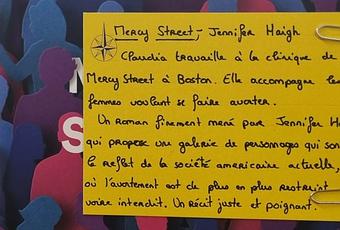 Mercy Street - Jennifer Haigh
Claudia travaille à la clinique de
Mercy Street à Boston. Elle accompagne les
femmes voulant se faire avorter.
Un roman finement mené par Jennifer Ha
qui propose une galerie de personnages qui son
le reflet de la société américaine actuelle,
où l'avortement est de plus en plus restreint
voire interdit. Un récit juste et poignant.
M
S